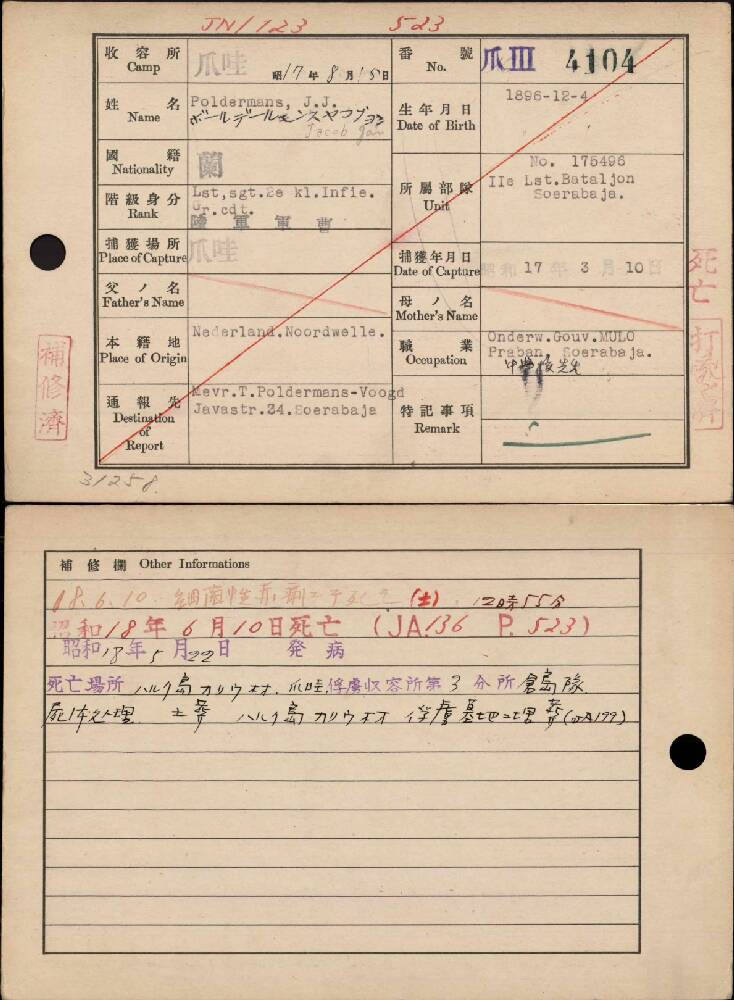 JN/123 523
收容所 Camp 爪哇 昭17年8月15日
番號 No. 爪III 4104
姓名 Name Poldermans, J.J.
ポールデールモンス ヤコブ ヨン
Jacob Jan
生年月日 Date of Birth 1896-12-4.
國籍 Nationality 蘭
階級身分 Rank Lst,sgt.2e kl.Infie.
Gr.cdt.
陸軍軍曹
所屬部隊 Unit No. 175496
IIe Lst.Bataljon
Soerabaja.
捕獲場所 Place of Capture 爪哇
捕獲年月日 Date of Capture 昭和17年3月10日
父ノ名 Father's Name
母ノ名 Mother's Name
本籍地 Place of Origin Nederland.Noordwelle.
職業 Occupation Onderw.Gouv.MULO
Praban, Soerabaja.
中學校先生
通報先 Destination of Report Mevr.T.Poldermans-Voogd
Javastr.24.Soerabaja
特記事項 Remark
死亡
補修濟
31258.
補修欄 Other Informations
18.6.10. 細菌性赤痢ニテ死亡 (土) 12時55分
昭和18年6月10日死亡 (JA.136 P.523)
昭和18年5月22日 発病
死亡場所 ハルク島カリウオオ. 爪哇俘虜収容所第3分所倉島隊
死体処理 土葬 ハルク島カリウオオ 俘虜墓地ニ埋葬(JA199)